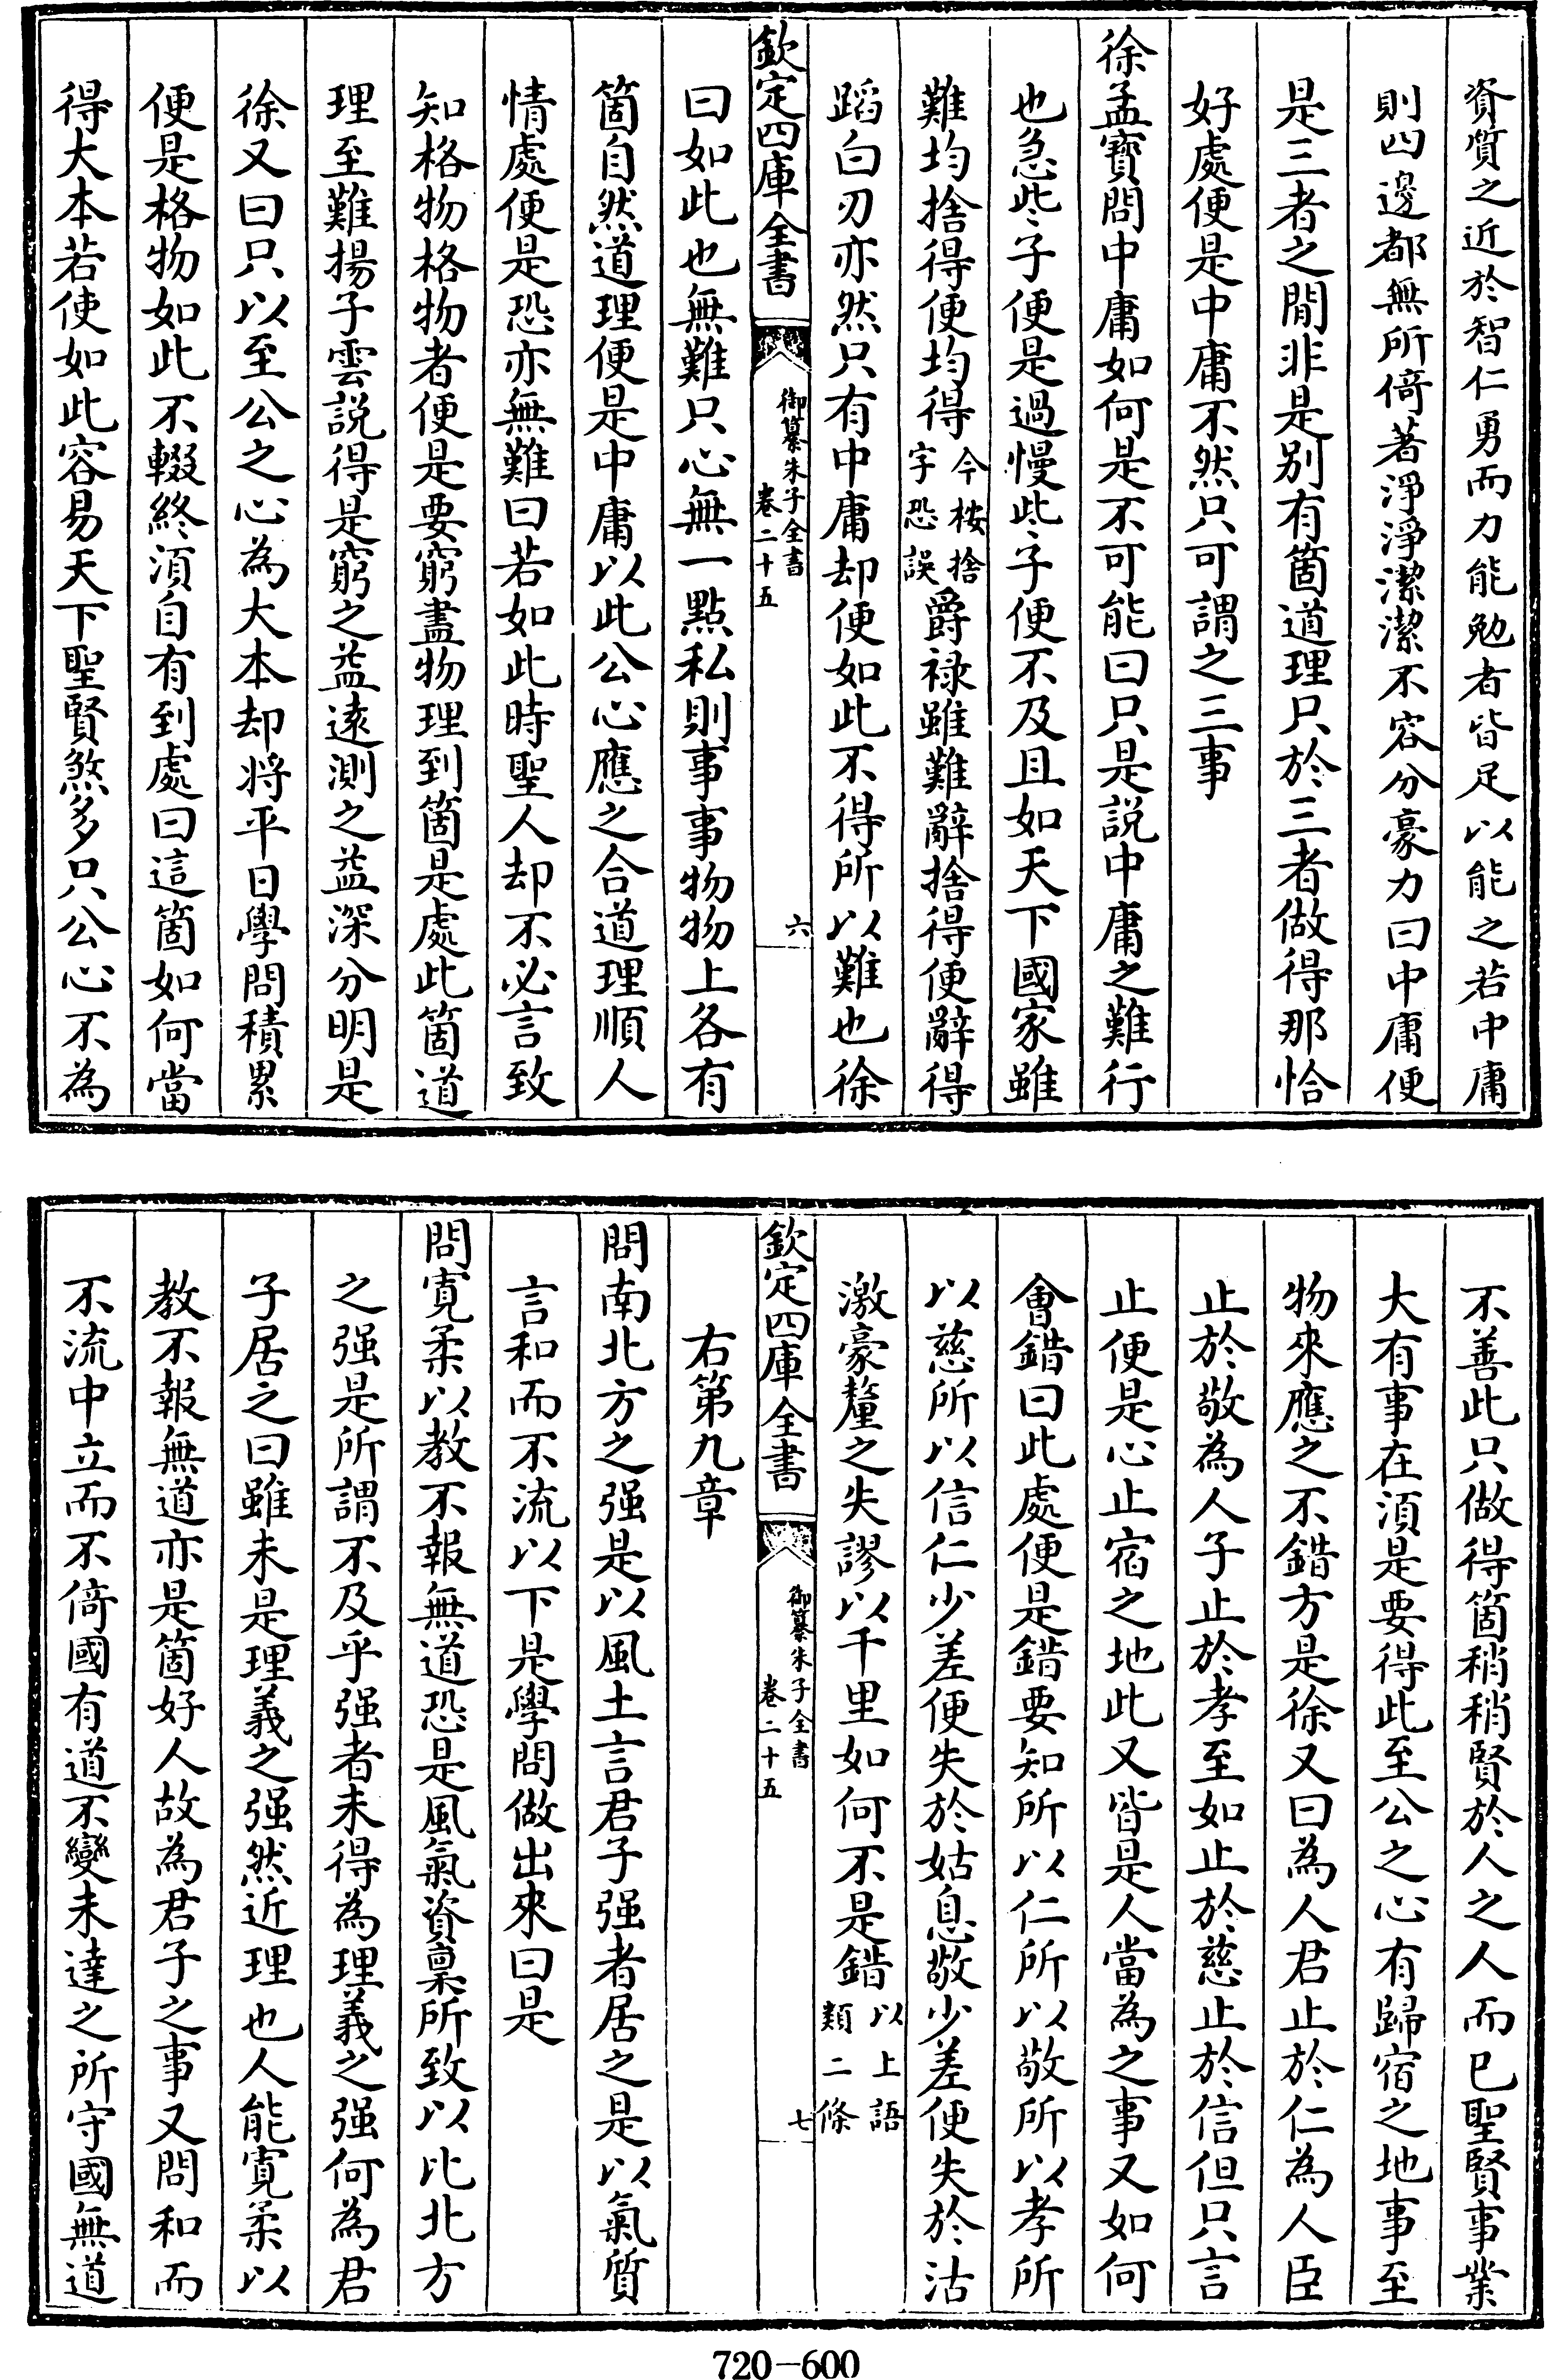 資質之近於智仁勇而力能勉者皆足以能之若中庸
則四邊都無所倚著淨淨潔潔不容分豪力曰中庸便
是三者之間非是别有箇道理只於三者做得那恰
好處便是中庸不然只可謂之三事
徐孟寶問中庸如何是不可能曰只是説中庸之難行
也急些子便是過慢些子便不及且如天下國家雖
難均捨得便均得今桉捨字恐誤爵禄雖難辭捨得便辭得
蹈白刃亦然只有中庸却便如此不得所以難也徐
欽定四庫全書
御纂朱子全書
卷二十五
六
曰如此也無難只心無一點私則事事物物上各有
箇自然道理便是中庸以此公心應之合道理順人
情處便是恐亦無難曰若如此時聖人却不必言致
知格物格物者便是要窮盡物理到箇是處此箇道
理至難揚子雲説得是窮之益遠測之益深分明是
徐又曰只以至公之心為大本却將平日學問積累
便是格物如此不輟終須自有到處曰這箇如何當
得大本若使如此容易天下聖賢煞多只公心不為
不善此只做得箇稍稍賢於人之人而已聖賢事業
大有事在須是要得此至公之心有歸宿之地事至
物來應之不錯方是徐又曰為人君止於仁為人臣
止於敬為人子止於孝至如止於慈止於信但只言
止便是心止宿之地此又皆是人當為之事又如何
會錯曰此處便是錯要知所以仁所以敬所以孝所
以慈所以信仁少差便失於姑息敬少差便失於沽
激豪釐之失謬以千里如何不是錯以上語類二條
欽定四庫全書
御纂朱子全書
卷二十五
七
右第九章
問南北方之强是以風土言君子强者居之是以氣質
言和而不流以下是學問做出來曰是
問寛柔以教不報無道恐是風氣資稟所致以比北方
之强是所謂不及乎强者未得為理義之强何為君
子居之曰雖未是理義之强然近理也人能寛柔以
教不報無道亦是箇好人故為君子之事又問和而
不流中立而不倚國有道不變未達之所守國無道
720-600